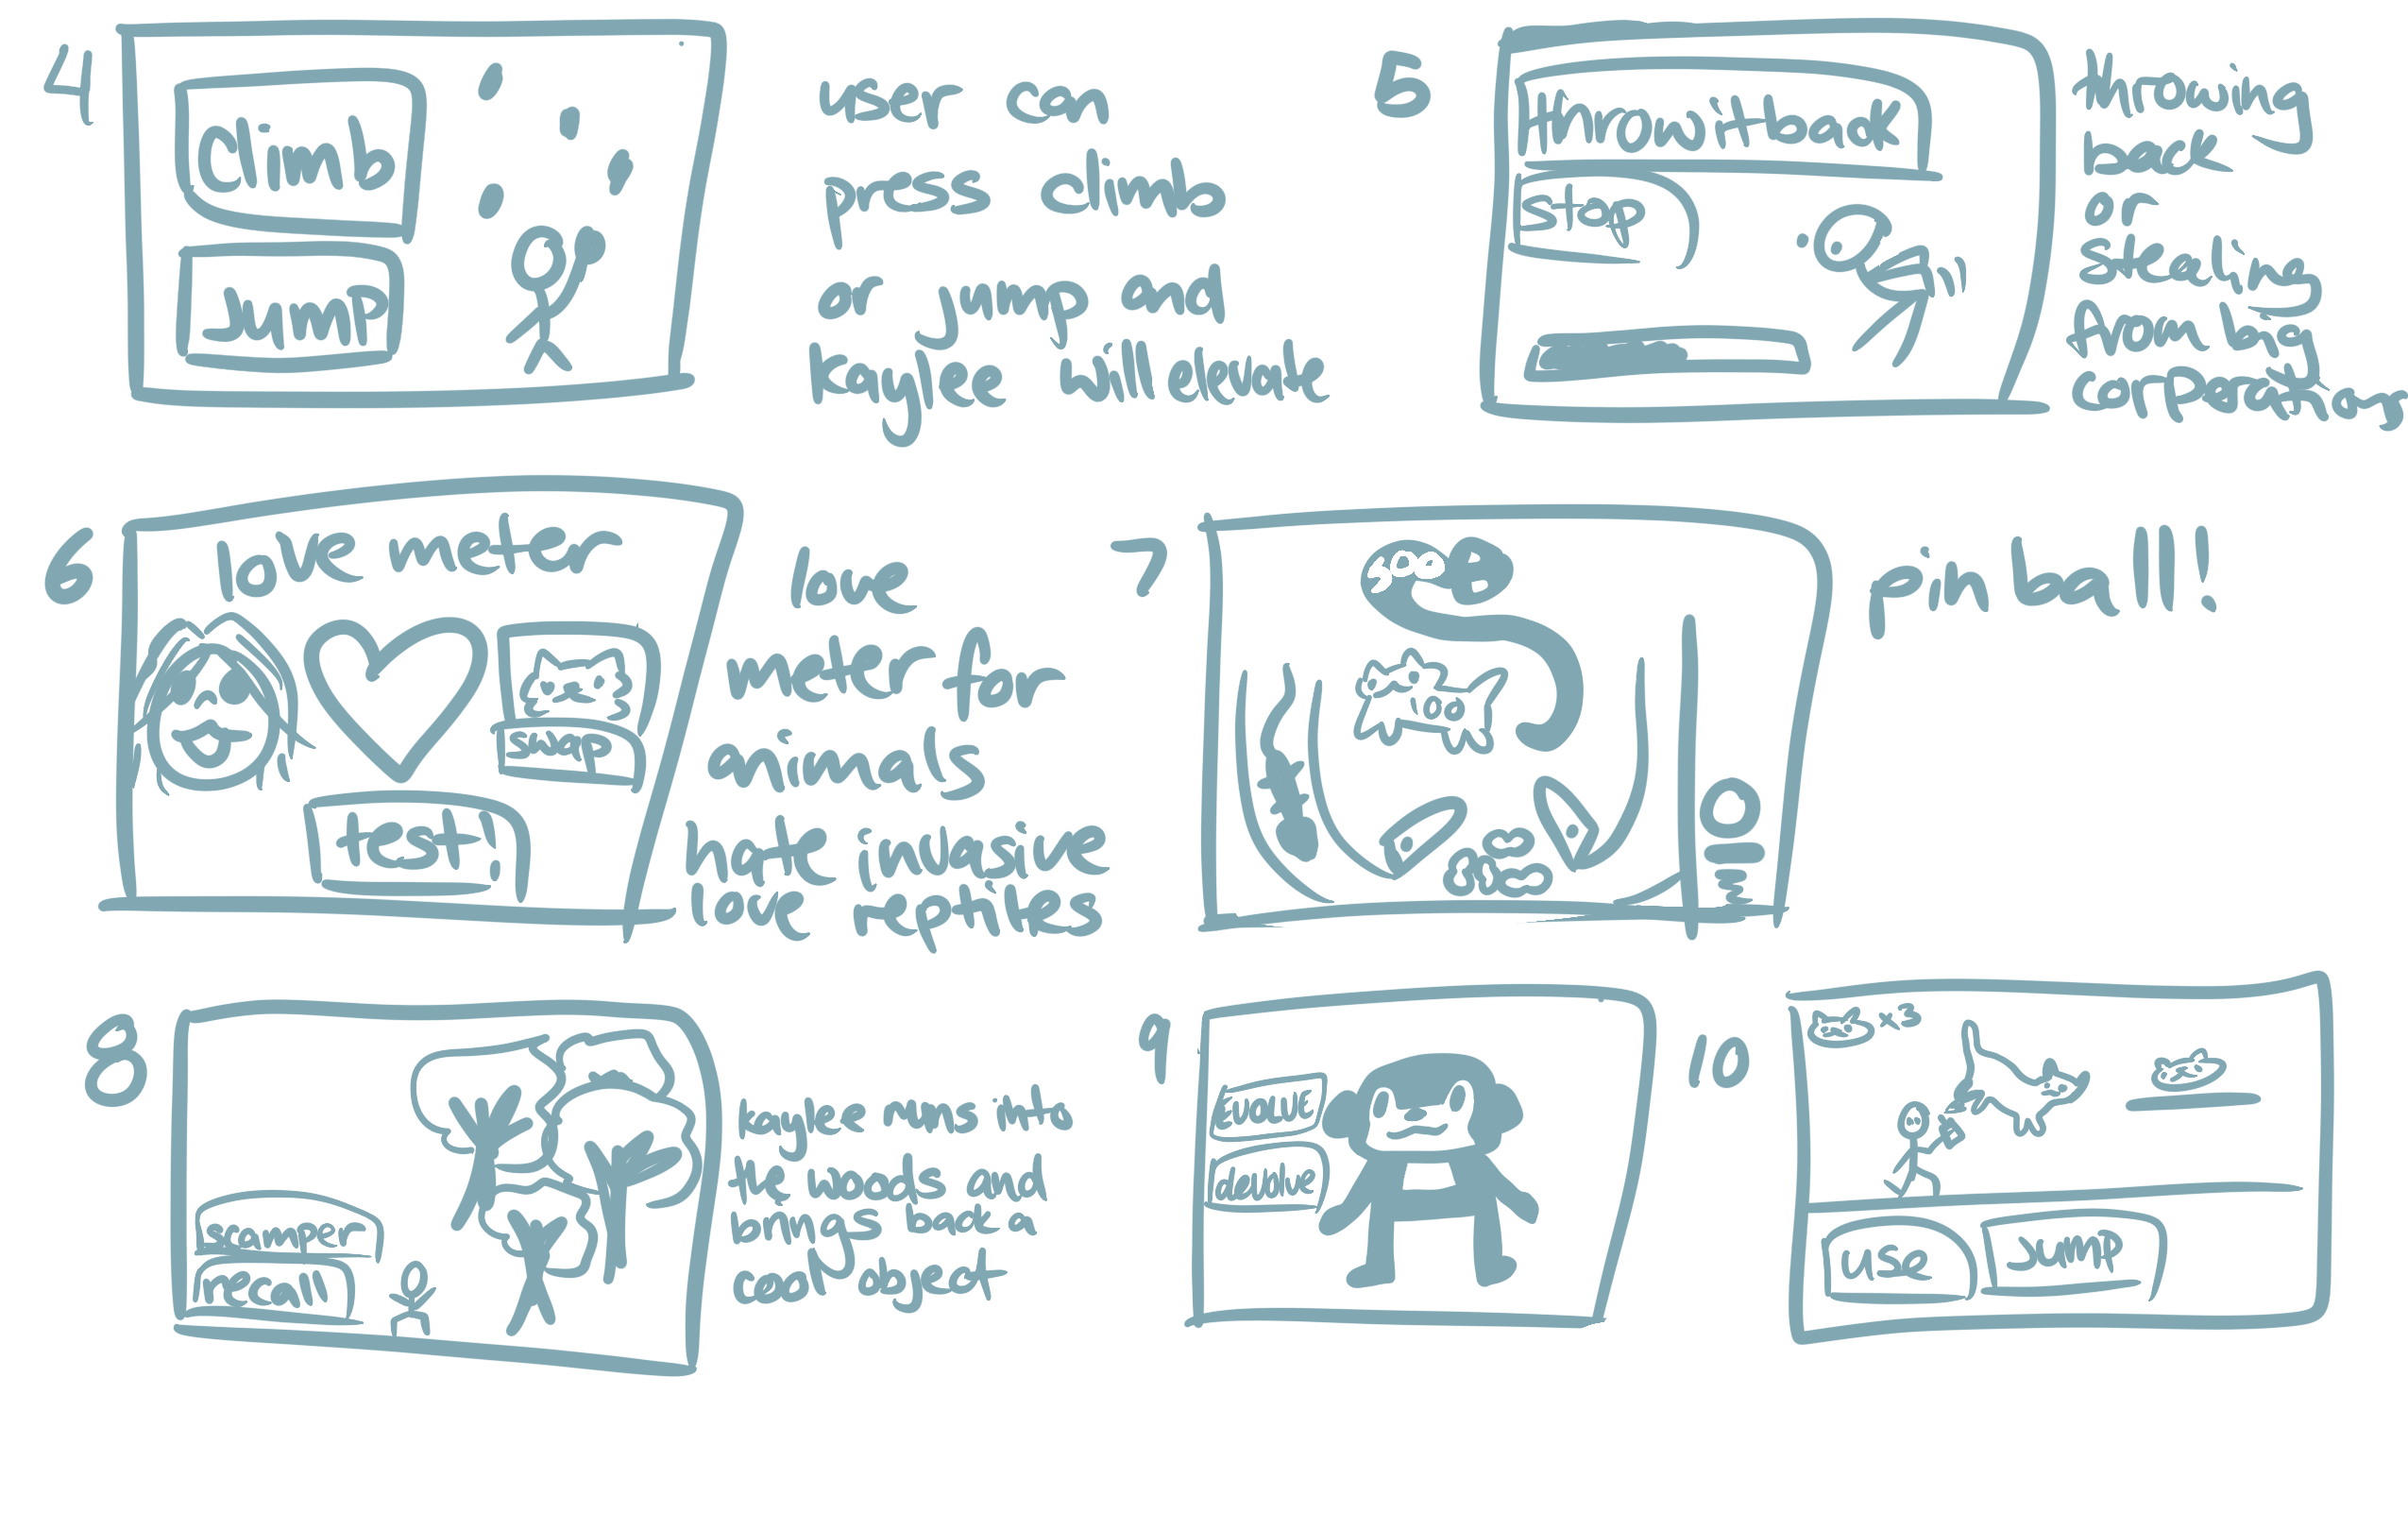 4
climb
jump
user can
press climb
or jump and
kaylee will attempt
5
throw it back
step
throwing
back
or
stealing
6
love meter
swap
test!
love
meter for
animals
hate invasive
love reptiles
7
pinball!
8
scamper
recall
kaylee runs into
the woods and
brings back an
cool object
9
evolve
devolve
10
x3
use
jump